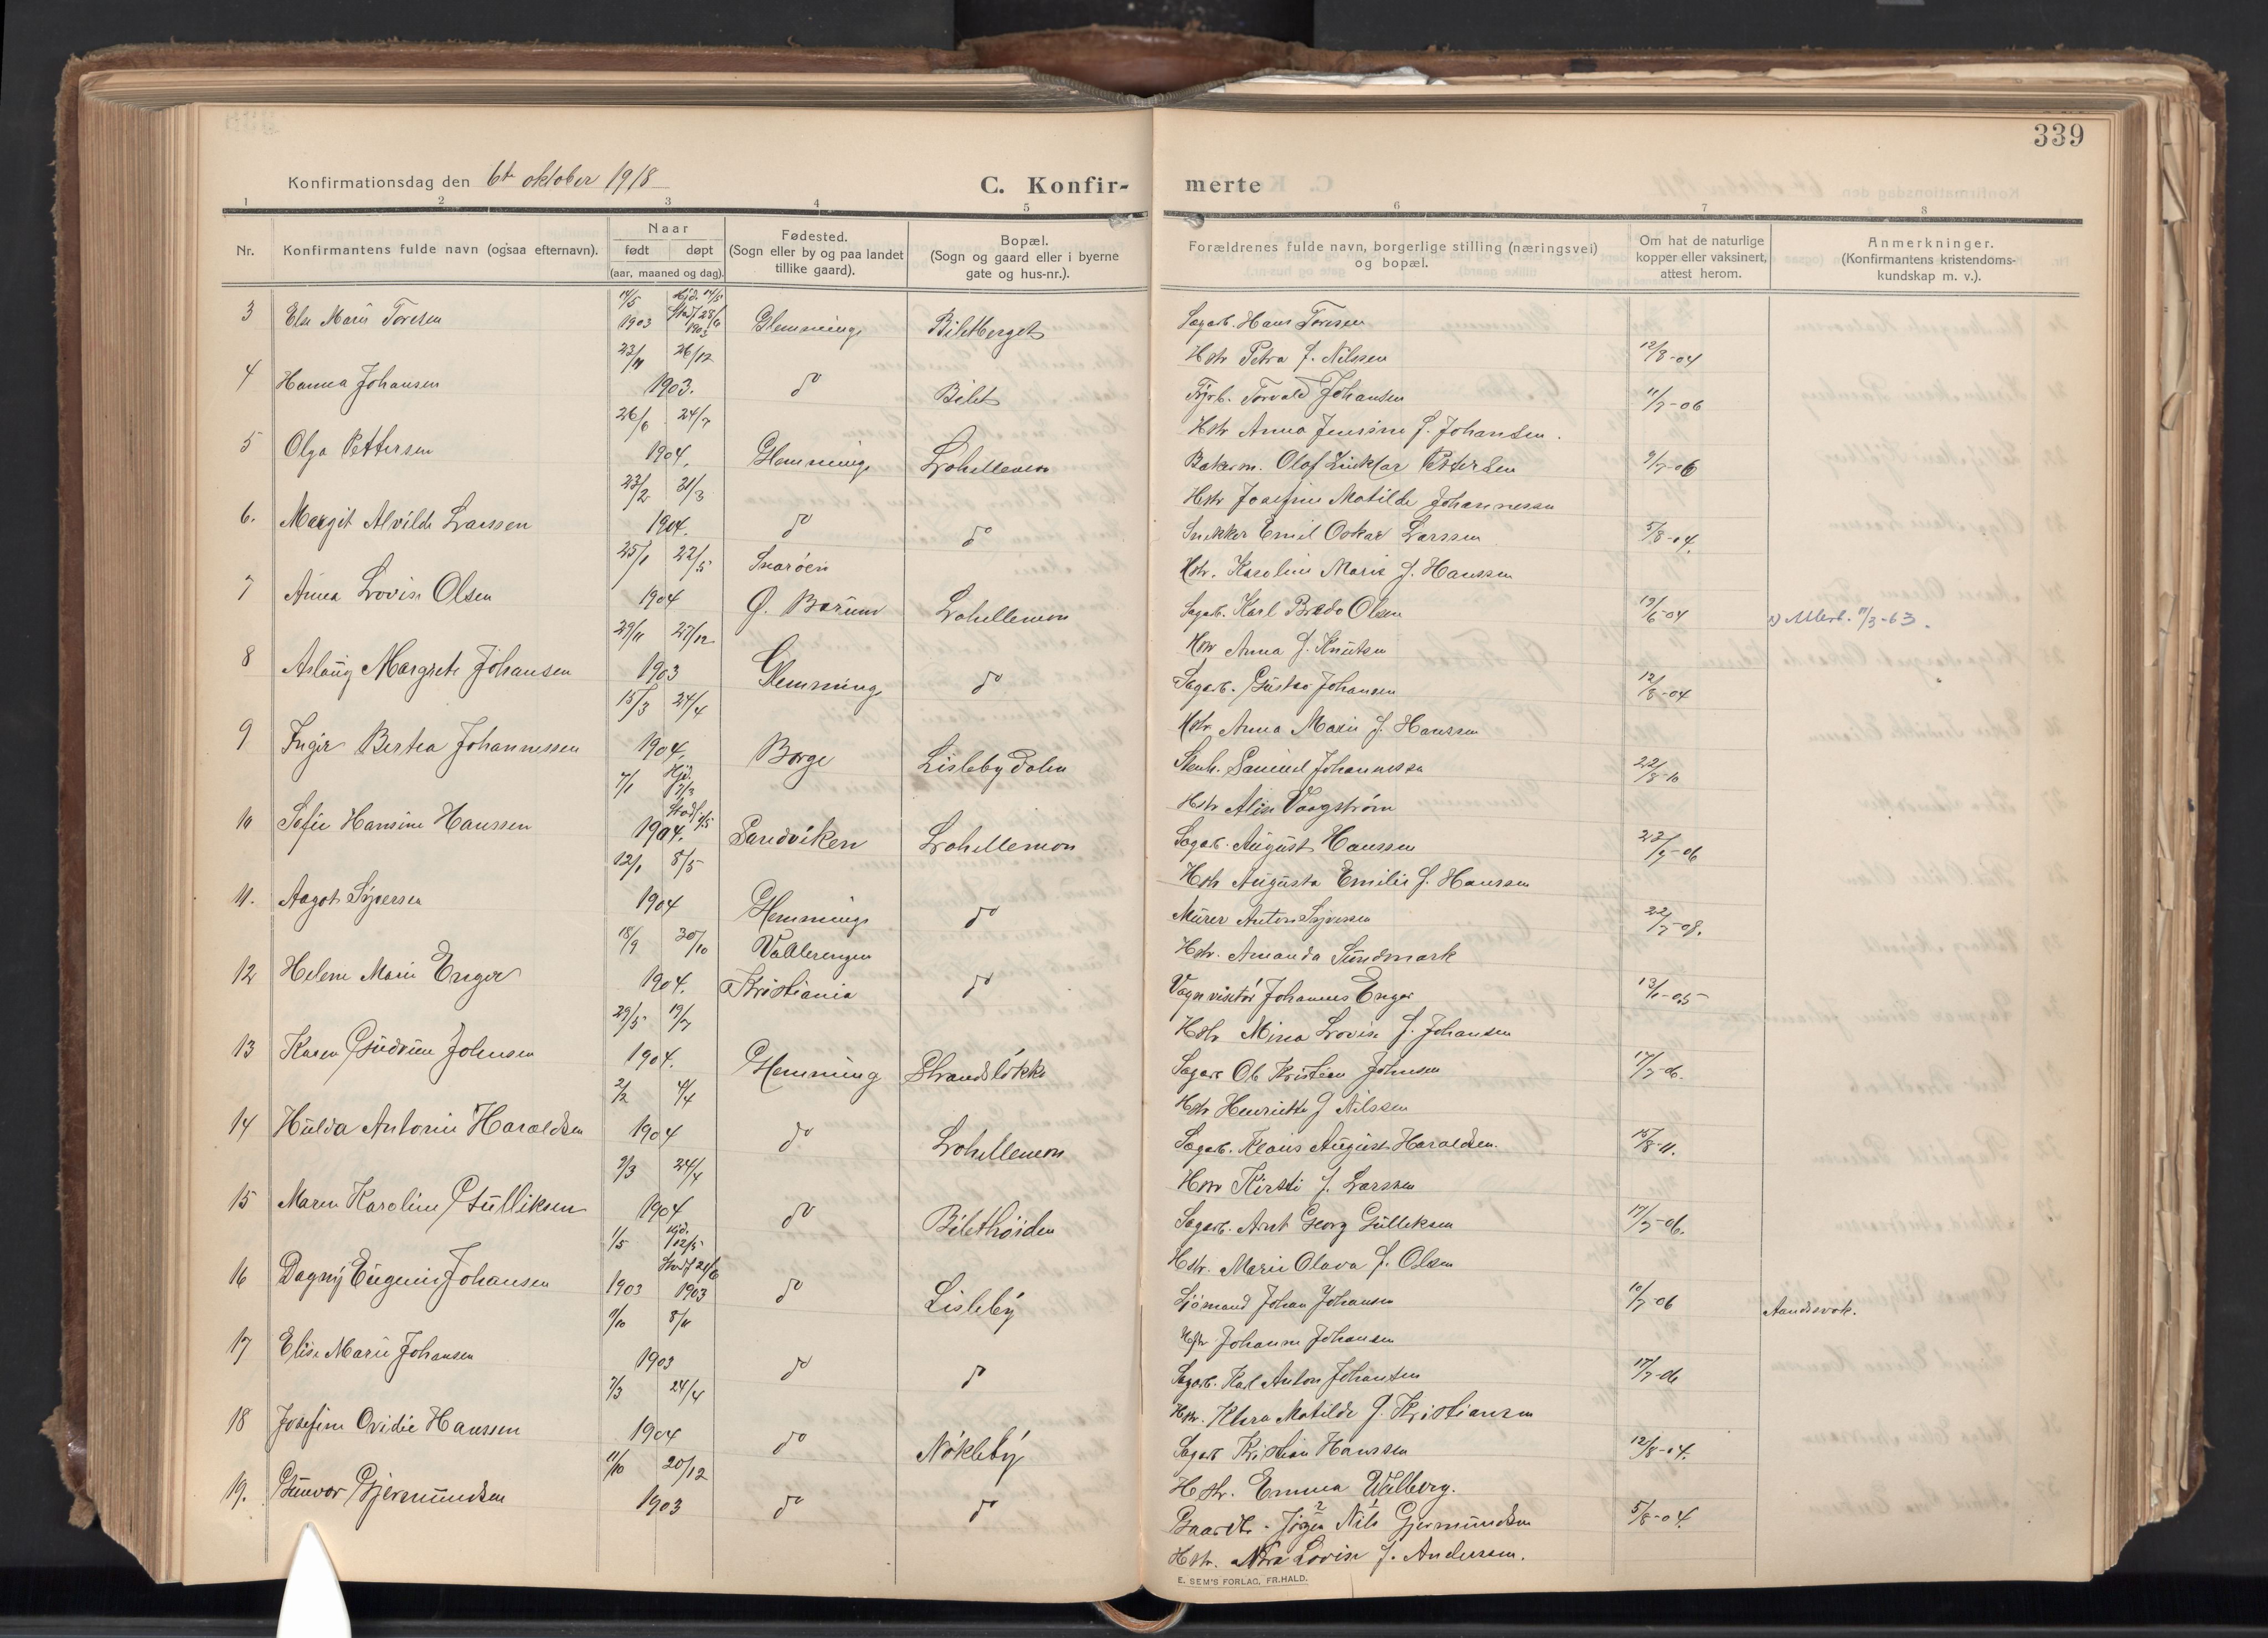 339
Konfirmationsdag den 6te oktober 1918
C. Konfir- merte
1 2 3 4 5 6 7 8
Nr.
Konfirmantens fulde navn (ogsaa efternavn).
Naar
født døpt
(aar, maaned og dag).
Fødested.
(Sogn eller by og paa landet
tillike gaard).
Bopæl.
(Sogn og gaard eller i byerne
gate og hus-nr.).
Forældrenes fulde navn, borgerlige stilling (næringsvei)
og bopæl.
Om hat de naturlige
kopper eller vaksinert,
attest herom.
Anmerkninger.
(Konfirmantens kristendoms-
kundskap m. v.).
3 Else Marie Toresen 14/5 1903 Hjd. 14/5 Stadf 28/6 1903 Glemminge Biletberget Sagarb. Hans Toresen
Hstr Petra f. Nilssen 12/8-04
4 Hanna Johansen 23/11 26/12 1903. do Bilet Fyrb. Torvald Johansen 11/7-06
Hstr Anna Jensine f. Johansen.
5 Olga Pettersen 26/6 24/7 1904. Glemminge Lohellemon Bakerm. Olaf Pettersen 9/7-06
Hstr Josefine Matilde Johannessen
6. Margit Alvilde Larssen 23/2 31/3 1904. do do Snekker Emil Oskar Larssen 5/8-04.
Hstr. Karoline Marie f. Hanssen
7 Anna Lovise Olsen 25/1 22/5 1904 Snarøen Ø. Bærum Lohellemon Sagarb. Karl Bredo Olsen 19/6-04 11/3-63.
Hstr Anna f. Knutsen
8 Aslaug Margrete Johansen 29/11 27/12 1903 Glemminge do Sagarb. Gustav Johansen 12/8-04
Hstr. Anna Marie f. Hanssen
9 Inger Bertea Johannessen 15/3 24/4 1904. Borge Lislebydalen Stenh. Samuel Johannessen 22/8-10
Hstr Alise Vaagstrøm
10 Sofie Hansine Hanssen 7/1 Hjd. 17/3 Stadf 1/5 1904. Sandviken Lohellemon Sagarb. August Hanssen 22/7-06
Hstr Augusta Emilie f. Hanssen
11. Aagot Syversen 12/1 8/5 1904 Glemminge do Murer Anton Syversen 22/7-08.
Hstr. Amanda Sundmark
12 Helene Marie Enger 18/9 30/10 1904. Vaallerengen Kristiania do Vognvisitør Johannes Enger 13/1-05
Hstr Mina Lovise f. Johansen
13 Karen Gudrun Johnsen 29/5 19/7 1904. Glemming Strandløkka Sagarb Ole Kristian Johnsen 17/7-06.
Hstr Henriette f Nilssen
14 Hulda Antonie Haraldsen 2/2 4/4 1904 do Lohellemon Sagarb. Klaus August Haraldsen. 15/8-11.
Hstr Kirsti f. Larssen
15 Maren Karoline Gulliksen 9/3 24/4 1904 do Bilethøiden Sagarb. Arnt Georg Gulleksen 17/7-06.
Hstr. Marie Olava f. Olsen
16 Dagny Eugenie Johansen 1/5 1903 Hjd. 12/5 Stadf 21/6 1903 do Lisleby Sjømand Johan Johansen 10/7-06 Aandssvak.
Hstr Johanne Johansen
17 Elise Marie Johansen 9/10 8/11 1903 do do Sagarb. Karl Anton Johansen 17/7-06
Hstr. Klara Matilde f. Kristiansen
18 Josefine Ovidie Hanssen 7/3 24/4 1904 do Nøkleby Sagarb Kristian Hanssen 12/8-04.
Hstr. Emma Welberg.
19. Gunvor Gjermundsen 11/10 20/12 1903 do do Gaardbr. Jørgen Nils Gjermundsen 5/8-04.
Hstr. Lovise f. Andersen.
E. SEM'S FORLAG, FR.HALD.